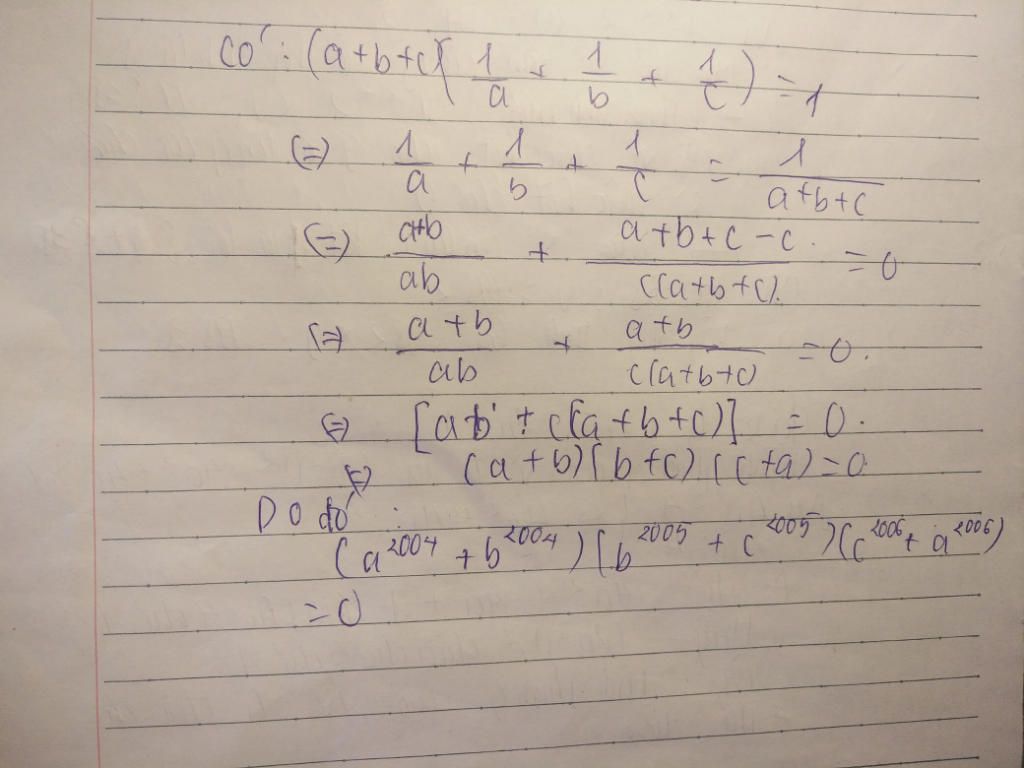 có : (a+b+c)(1/a + 1/b + 1/c) = 1
(=) 1/a + 1/b + 1/c = 1/(a+b+c)
(=) (a+b)/ab + (a+b+c-c)/(c(a+b+c)) = 0
(=) (a+b)/ab + (a+b)/(c(a+b+c)) = 0.
(=) [ab + c(a+b+c)] = 0.
(=) (a+b)(b+c)(c+a) = 0
Do đó :
(a^2004 + b^2004)(b^2005 + c^2005)(c^2006 + a^2006)
= 0